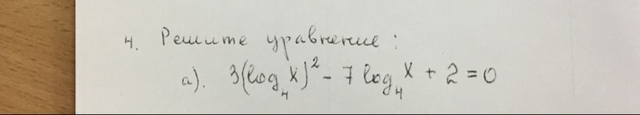 4. Решите уравнение:
а). 3(log₄x)² - 7 log₄x + 2 = 0